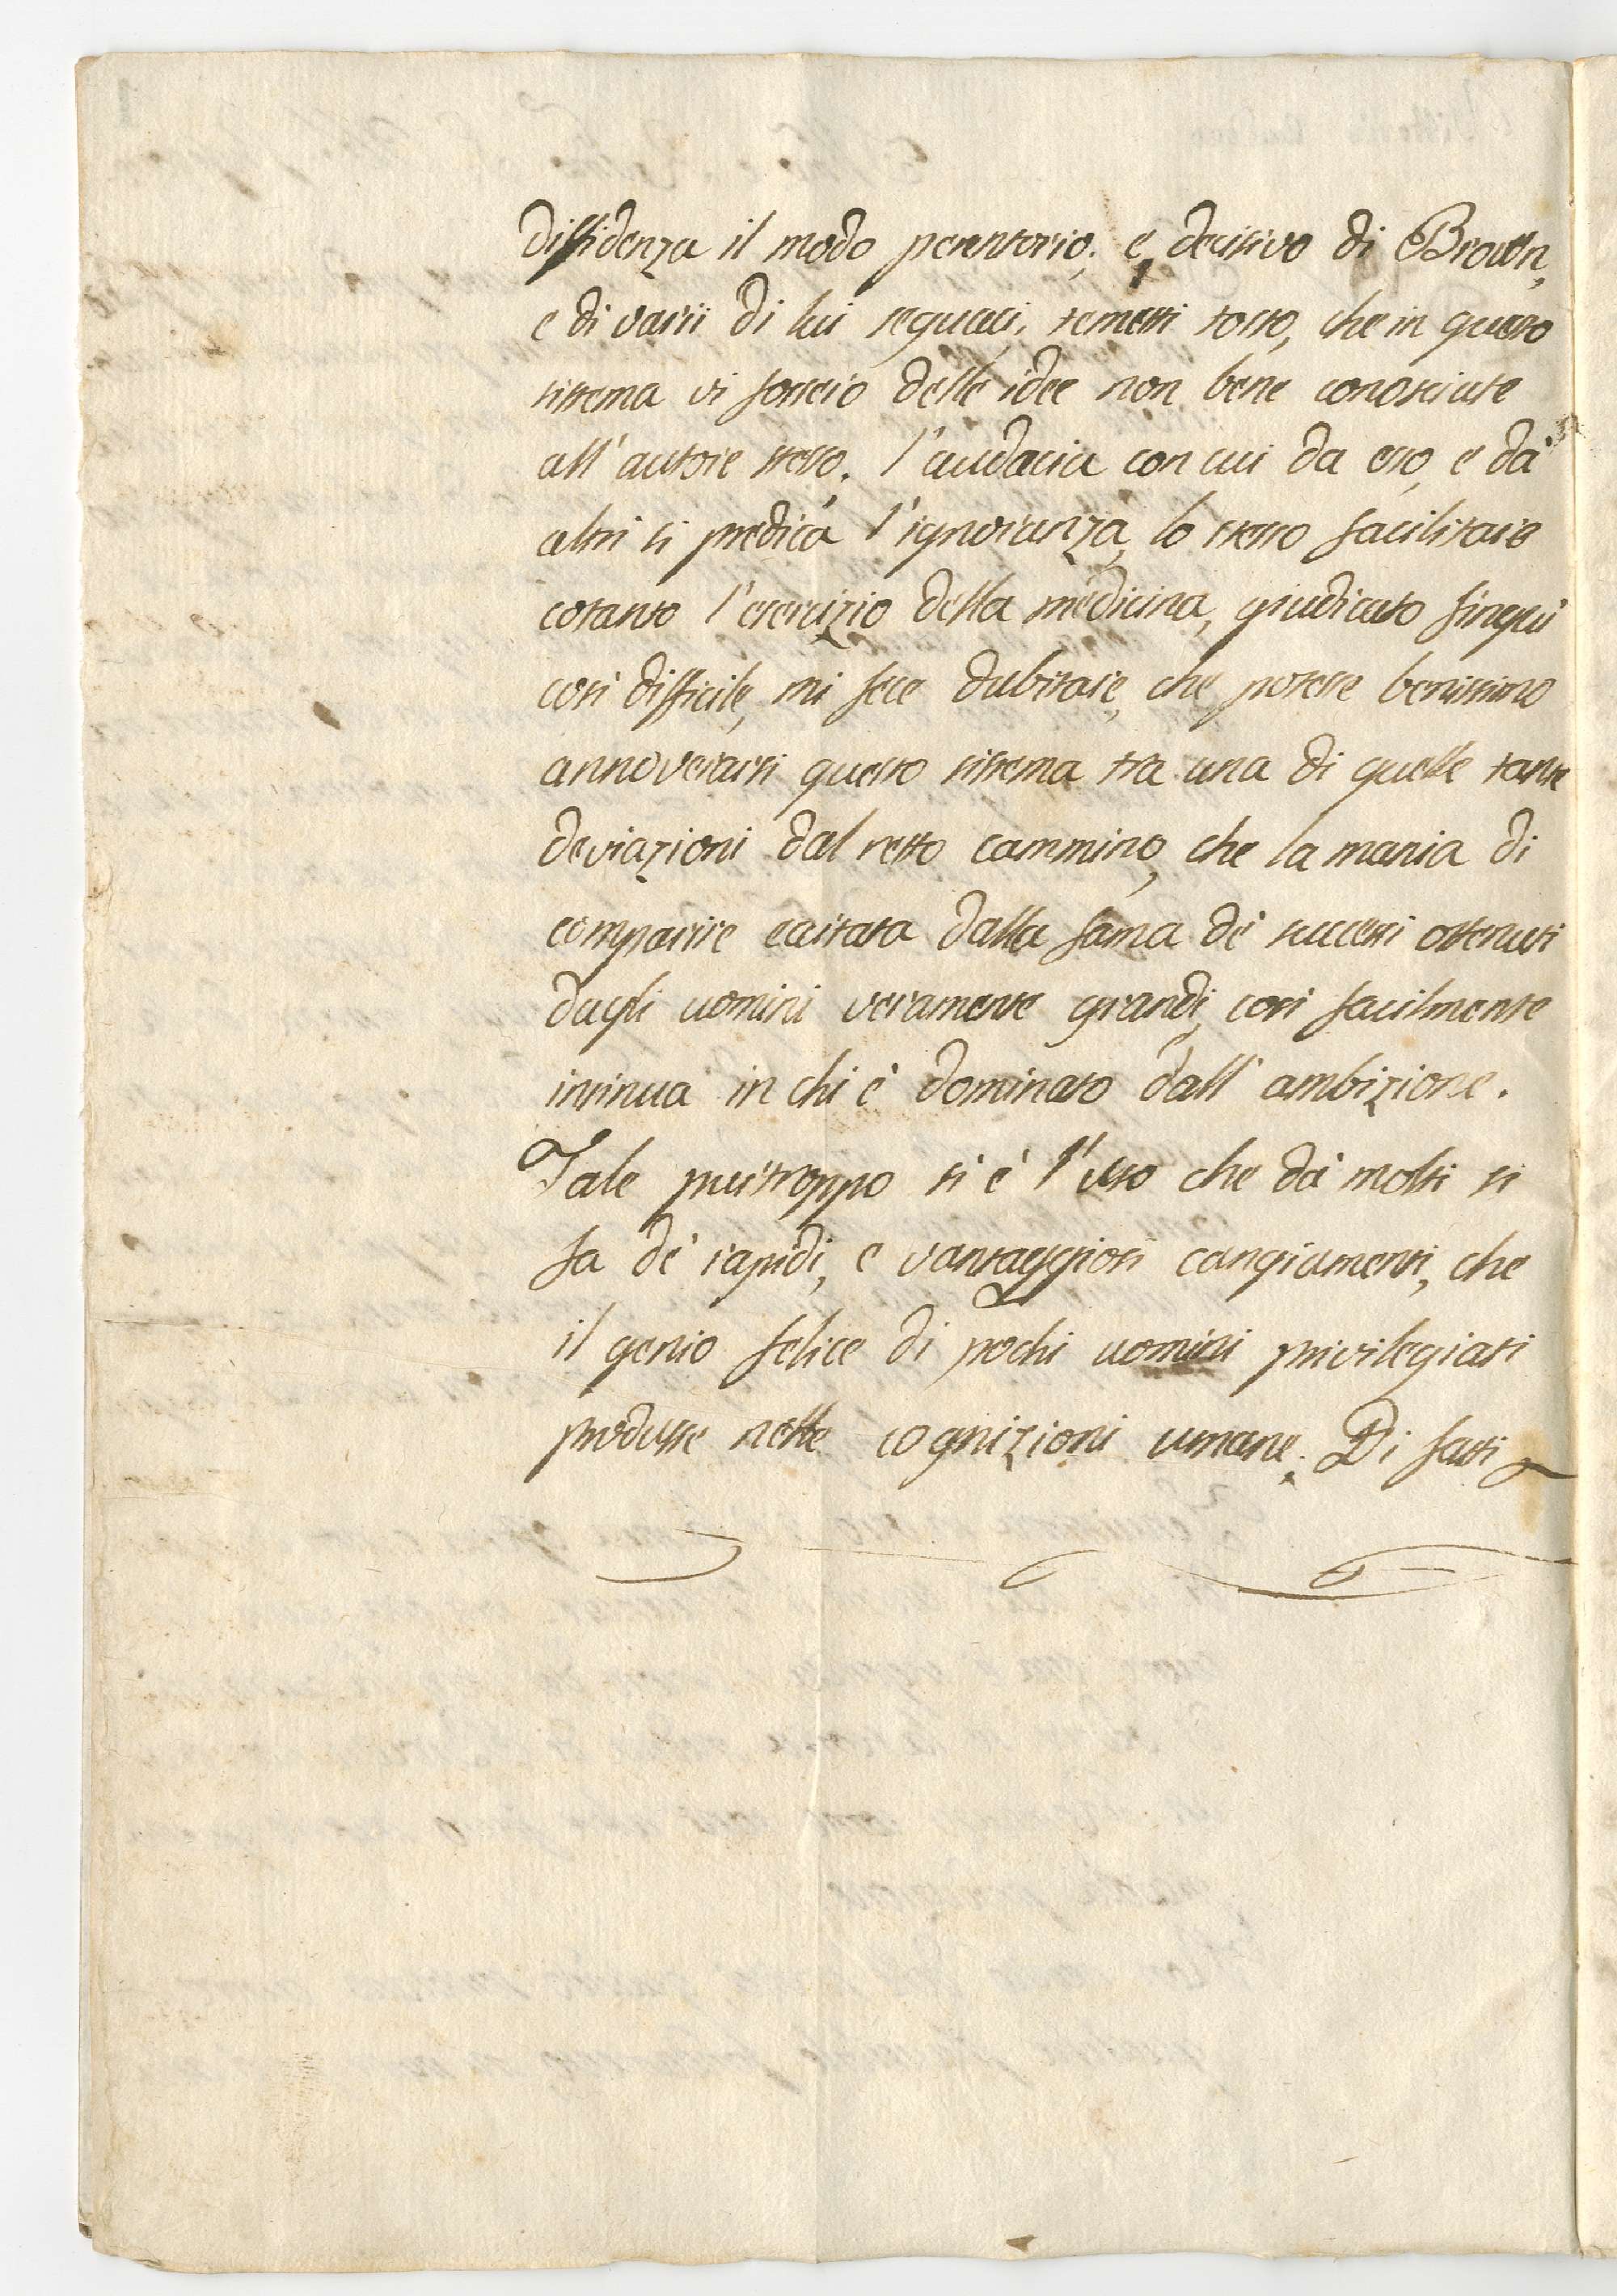 diffidenza il modo perentorio, e decisivo di Brown,
e di varii di lui seguaci, temetti tosto, che in questo
sistema vi fossero delle idee non bene conosciute
all'autore stesso. l'audacia con cui da esso, e da
altri si predica l'ignoranza, lo stesso facilitare
cotanto l'esercizio della medicina, giudicato finquì
così difficile, mi fece dubitare, che potesse benissimo
annoverarsi questo sistema tra una di quelle tante
deviazioni dal retto cammino, che la mania di
comparire eccitata dalla fama de' successi ottenuti
dagli uomini veramente grandi, così facilmente
insinua in chi è dominato dall'ambizione.
Tale purtroppo si è l'uso che da molti si
fa de' rapidi, e vantaggiosi cangiamenti, che
il genio felice di pochi uomini privilegiati
produsse nelle cognizioni umane. Di fatti